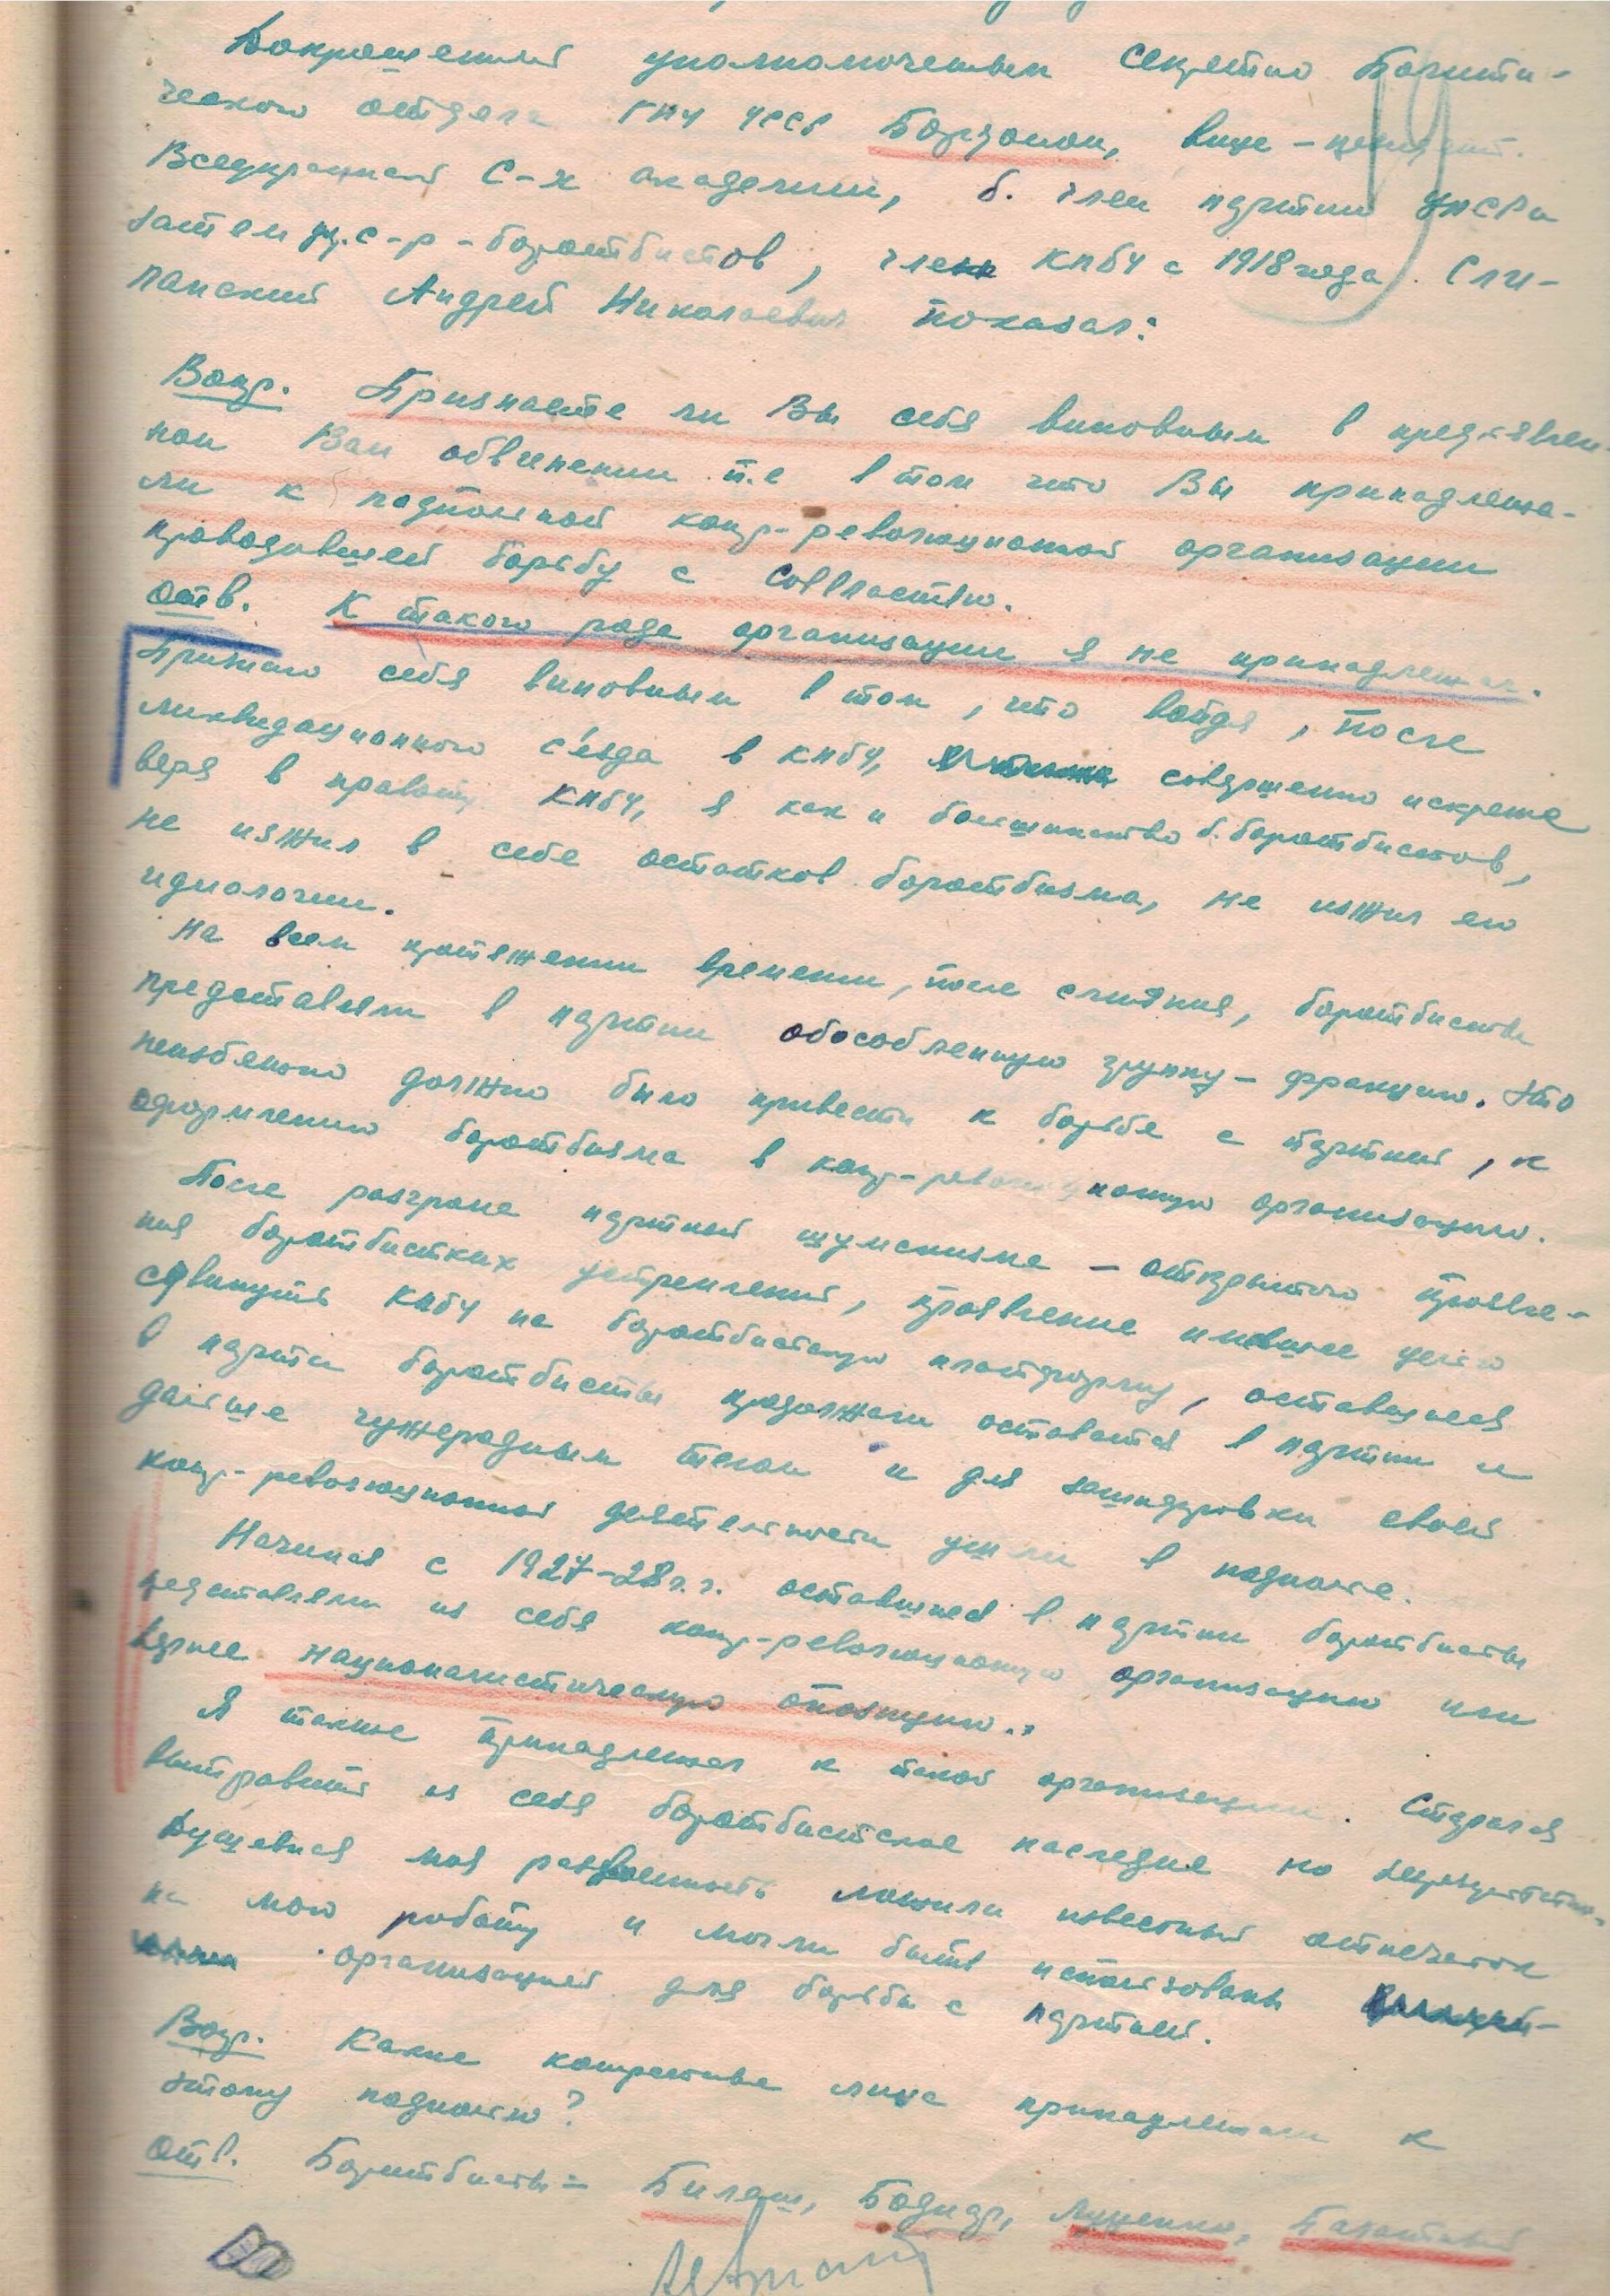 Допрошенный уполномоченным Секретно Полити-
ческого отдела ГПУ УССР Борзовым, вице-президент.
Всеукраинской С-х академии, б. член партии УПСР и
затем у.с-р-боротьбистов, член КПбУ с 1918 года. Сли-
панский Андрей Николаевич показал:
Вопр. Признаете ли Вы себя виновным в предъявлен-
ном Вам обвинении т.е в том что Вы принадлежа-
ли к подпольной контр-революционной организации
проводившей борьбу с Соввластью.
Отв. К такого рода организации я не принадлежал.
Признаю себя виновным в том, что войдя, после
ликвидационного с'езда в КПбУ, совершенно искренне
веря в правоту КПбУ, я как и большинство б. боротьбистов,
не изжил в себе остатков боротьбизма, не изжил его
идиологии.
На всем протяжении времени, после слияния, боротьбисты
представляли в партии обособленную группу - фракцию. Это
неизбежно должно было привести к борьбе с партией, к
оформлению боротьбизма в контр-революционную организацию.
После разгрома партией шумскизма - открытого проявле-
ния боротьбистких устремлений, проявление имевшее целью
сдвинуть КПбУ на боротьбистскую платформу, оставшиеся
в партии боротьбисты продолжали оставаться в партии и
дальше чужеродным телом и для зашифровки своей
контр-революционной деятельности ушли в подполье.
Начиная с 1927-28 г.г. оставшиеся в партии боротьбисты
представляли из себя контр-революционную организацию или
вернее националистическую опозицию.
Я также принадлежал к такой организации. Старался
вытравить из себя боротьбистское наследие но
Душевная моя раздвоенность ложили известный отпечаток
на мою работу и могли быть использованы
организацией для борьбы с партией.
Вопр. Какие конкретные лица принадлежали к
этому подполью?
Отв. Боротьбисты - Билаш, Боднар,